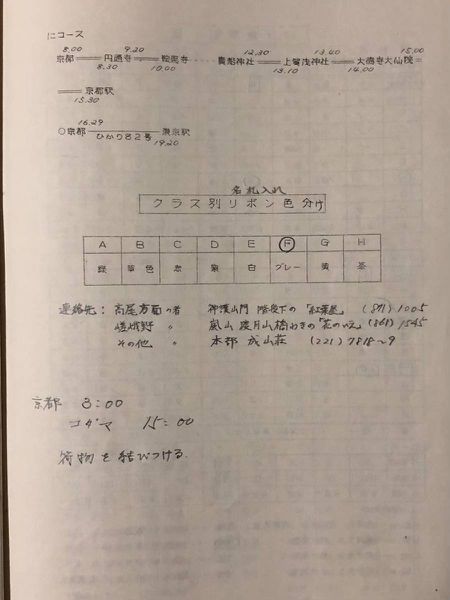 にコース
8.00 9.20 12.30 13.40 15.00
京都 円通寺 鞍馬寺 ‥‥‥ 貴船神社 上賀茂神社 大徳寺大仙院
8.30 10.00 13.10 14.00
京都駅
15.30
16.29
○京都 ひかり82号 東京駅
19.20
名札入れ
クラス別リボン色分け
A B C D E F G H
緑 赤 紫 白 グレー 黄 茶
連絡先:高尾方面の者 神護山門 階段下の「紅葉屋」(871)1005
嵯峨野 〃 嵐山渡月山橋わきの「花のいえ」(861)1545
その他 〃 本部 成山荘 (221)7818~9
京都 8:00
コダマ 15:00
荷物を結びつける.